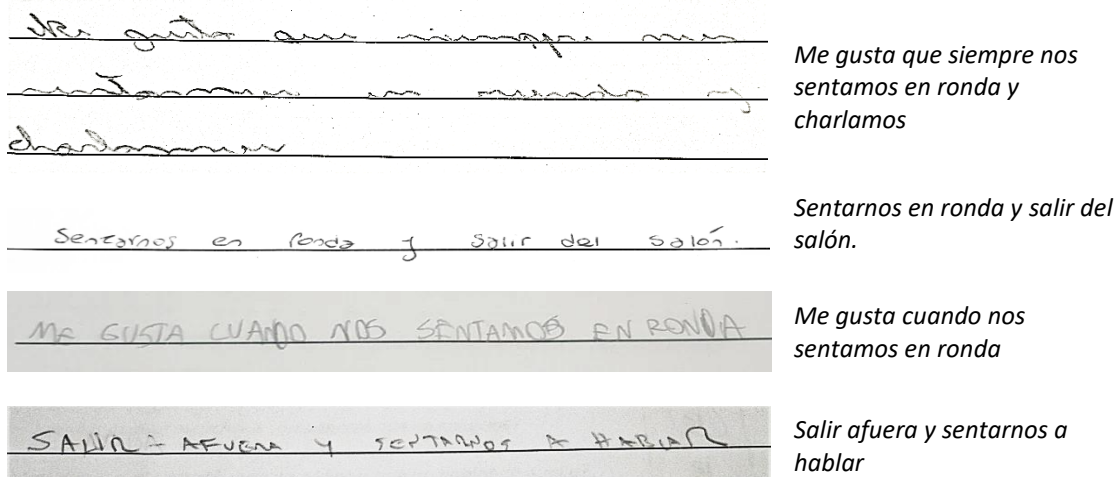 Me gusta que siempre nos
sentamos en ronda y
charlamos
Me gusta que siempre nos
sentamos en ronda y
charlamos
Sentarnos en ronda y salir del salón.
Sentarnos en ronda y salir del
salón.
ME GUSTA CUANDO NOS SENTAMOS EN RONDA
Me gusta cuando nos
sentamos en ronda
SALIR AFUERA Y SENTARNOS A HABLAR
Salir afuera y sentarnos a
hablar